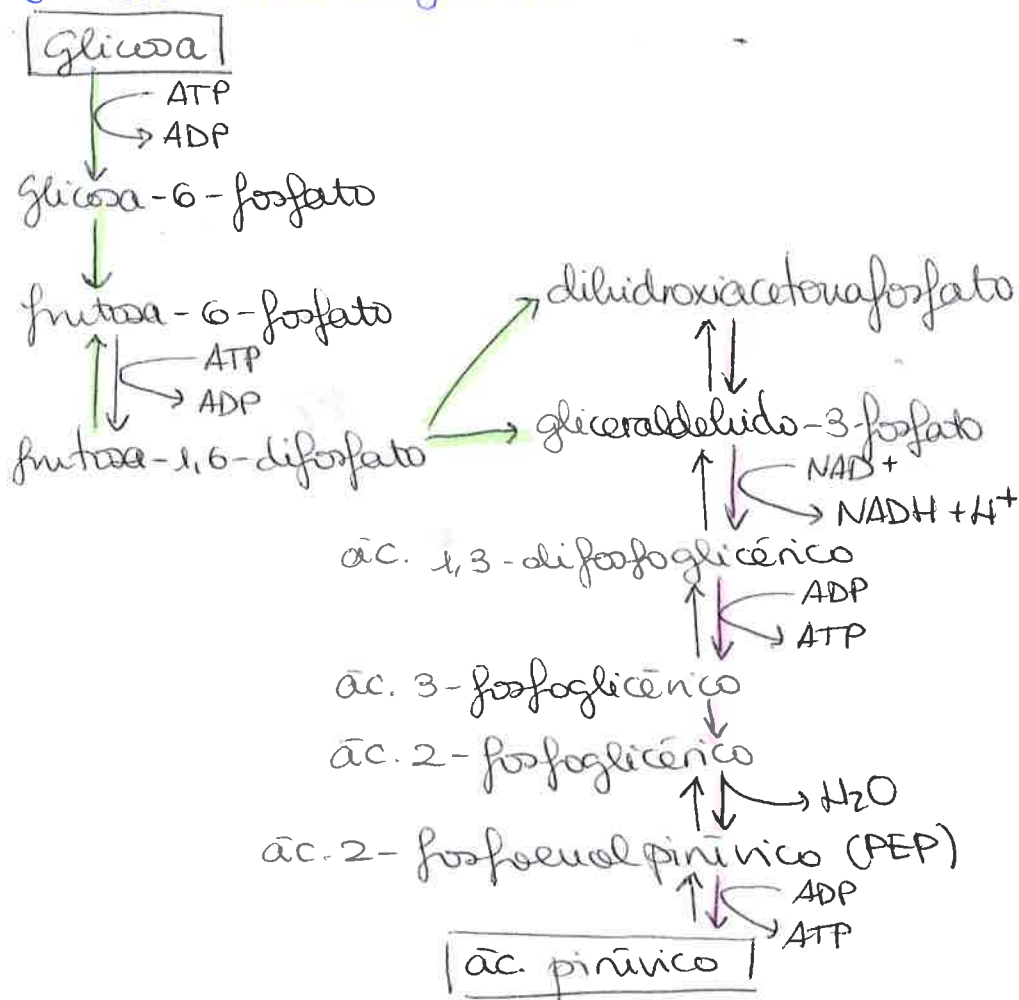 Glicosa
ATP
ADP
Glicosa-6-fosfato
frutosa-6-fosfato
ATP
ADP
frutosa-1,6-difosfato
dihidroxiacetonafosfato
gliceraldehido-3-fosfato
NAD+
NADH + H+
ác. 1,3-difosfoglicérico
ADP
ATP
ác. 3-fosfoglicérico
ác. 2-fosfoglicérico
H₂O
ác. 2-fosfoenolpirúvico (PEP)
ADP
ATP
ác. pirúvico